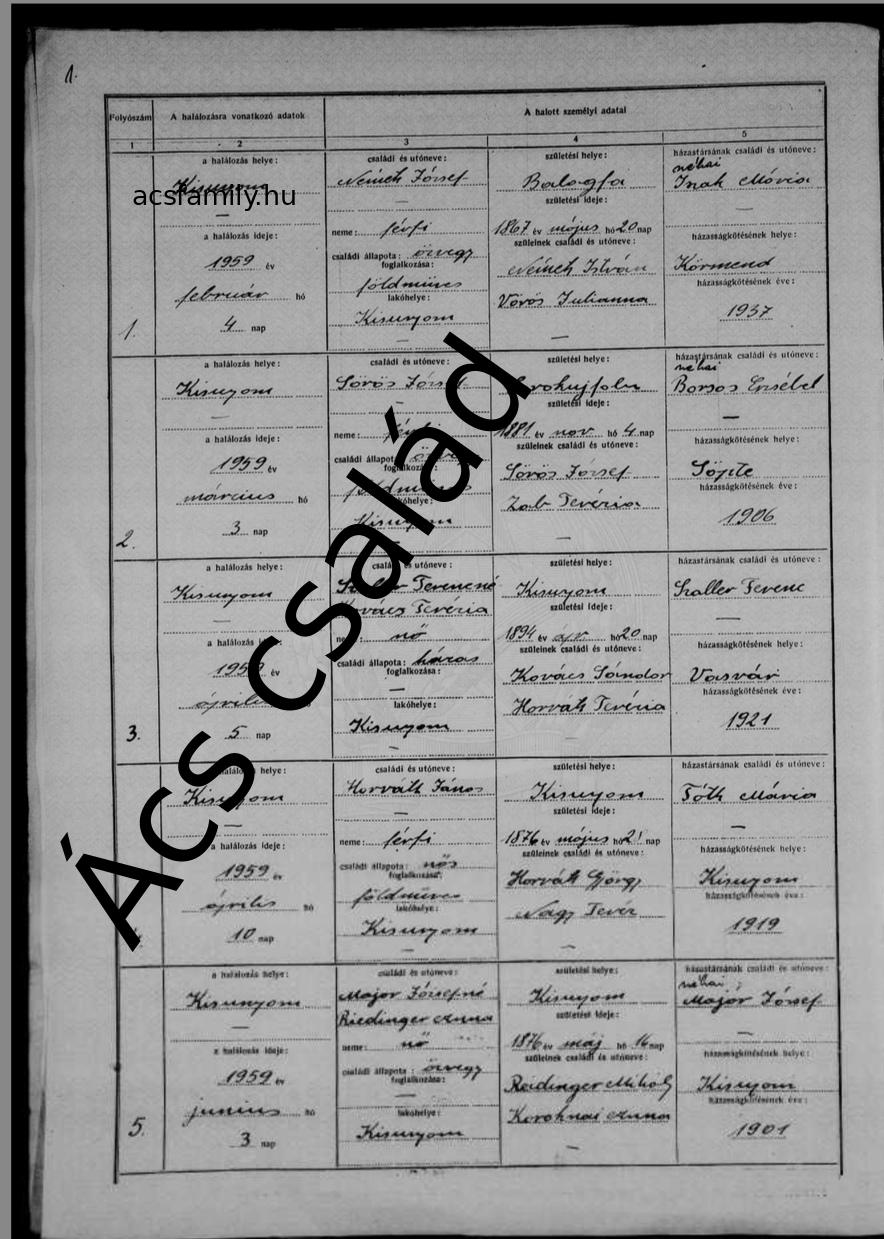 1.
Folyószám
A halálozásra vonatkozó adatok
A halott személyi adatai
1
2
3
4
5
a halálozás helye:
Kisunyom
—
a halálozás ideje:
1959 év
február hó
4 nap
1.
családi és utóneve:
Németh József
—
neme: férfi
családi állapota: özvegy
foglalkozása:
földműves
lakóhelye:
Kisunyom
—
születési helye:
Balogfa
születési ideje:
1867 év május hó 20 nap
szüleinek családi és utóneve:
Németh István
Vörös Julianna
—
házastársának családi és utóneve:
néhai
Mária
—
házasságkötésének helye:
Körmend
házasságkötésének éve:
1937
a halálozás helye:
Kisunyom
—
a halálozás ideje:
1959 év
március hó
3 nap
2.
családi és utóneve:
Sörös József
—
neme: férfi
családi állapota: özvegy
foglalkozása:
földműves
lakóhelye:
Kisunyom
születési helye:
születési ideje:
1881 év nov hó 4 nap
szüleinek családi és utóneve:
Sörös József
Zab Terézia
—
házastársának családi és utóneve:
néhai
Borsos Erzsébet
—
házasságkötésének helye:
Söpte
házasságkötésének éve:
1906
a halálozás helye:
Kisunyom
—
a halálozás ideje:
1959 év
április
5 nap
3.
családi és utóneve:
Szaller Ferencné
Kovács Terézia
neme: nő
családi állapota: házas
foglalkozása:
—
lakóhelye:
Kisunyom
—
születési helye:
Kisunyom
születési ideje:
1894 év ápr hó 20 nap
szüleinek családi és utóneve:
Kovács Sándor
Horváth Terézia
—
házastársának családi és utóneve:
Szaller Ferenc
—
házasságkötésének helye:
Vasvár
házasságkötésének éve:
1921
a halálozás helye:
Kisunyom
—
a halálozás ideje:
1959 év
április hó
10 nap
családi és utóneve:
Horváth János
—
neme: férfi
családi állapota: nős
foglalkozása:
földműves
lakóhelye:
Kisunyom
—
születési helye:
Kisunyom
születési ideje:
1876 év május hó 21 nap
szüleinek családi és utóneve:
Horváth György
Nagy Teréz
—
házastársának családi és utóneve:
Tóth Mária
—
házasságkötésének helye:
Kisunyom
házasságkötésének éve:
1919
a halálozás helye:
Kisunyom
—
a halálozás ideje:
1959 év
június hó
3 nap
5.
családi és utóneve:
Major Józsefné
Riedinger Anna
neme: nő
családi állapota: özvegy
foglalkozása:
—
lakóhelye:
Kisunyom
születési helye:
Kisunyom
születési ideje:
1876 év máj hó 16 nap
szüleinek családi és utóneve:
Reidinger Mihály
Koroknai Anna
—
házastársának családi és utóneve:
néhai
Major József
—
házasságkötésének helye:
Kisunyom
házasságkötésének éve:
1901
acsfamily.hu
Ács család